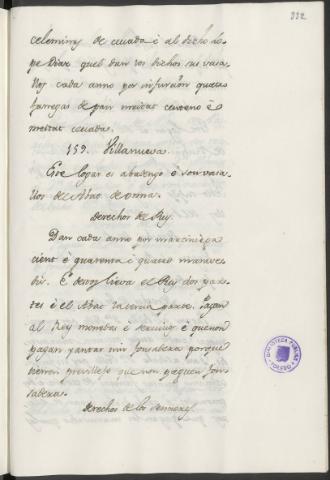 332
celemines de cevada è al dicho Lo-
pe Diaz quel dan los dichos sus vasa-
llos cada anno por infurción quatro
fanegas de pan meitat centeno è
meitat cevada.
159. Villanueva.
Este logar es abadengo è son vasa-
llos del Abat de onna.
Derechos del Rey.
Dan cada anno por martiniega
cient è quarenta è quatro marave-
dis. E desto lieva el Rey dos par-
tes è el Abat la tercia parte. Pagan
al Rey monedas è servicios è que non
pagan yantar nin fonsadera porque
tienen previllejo que non paguen fon-
sadera.
Derechos de los Sennores
BIBLIOTECA PUBLICA
TOLEDO